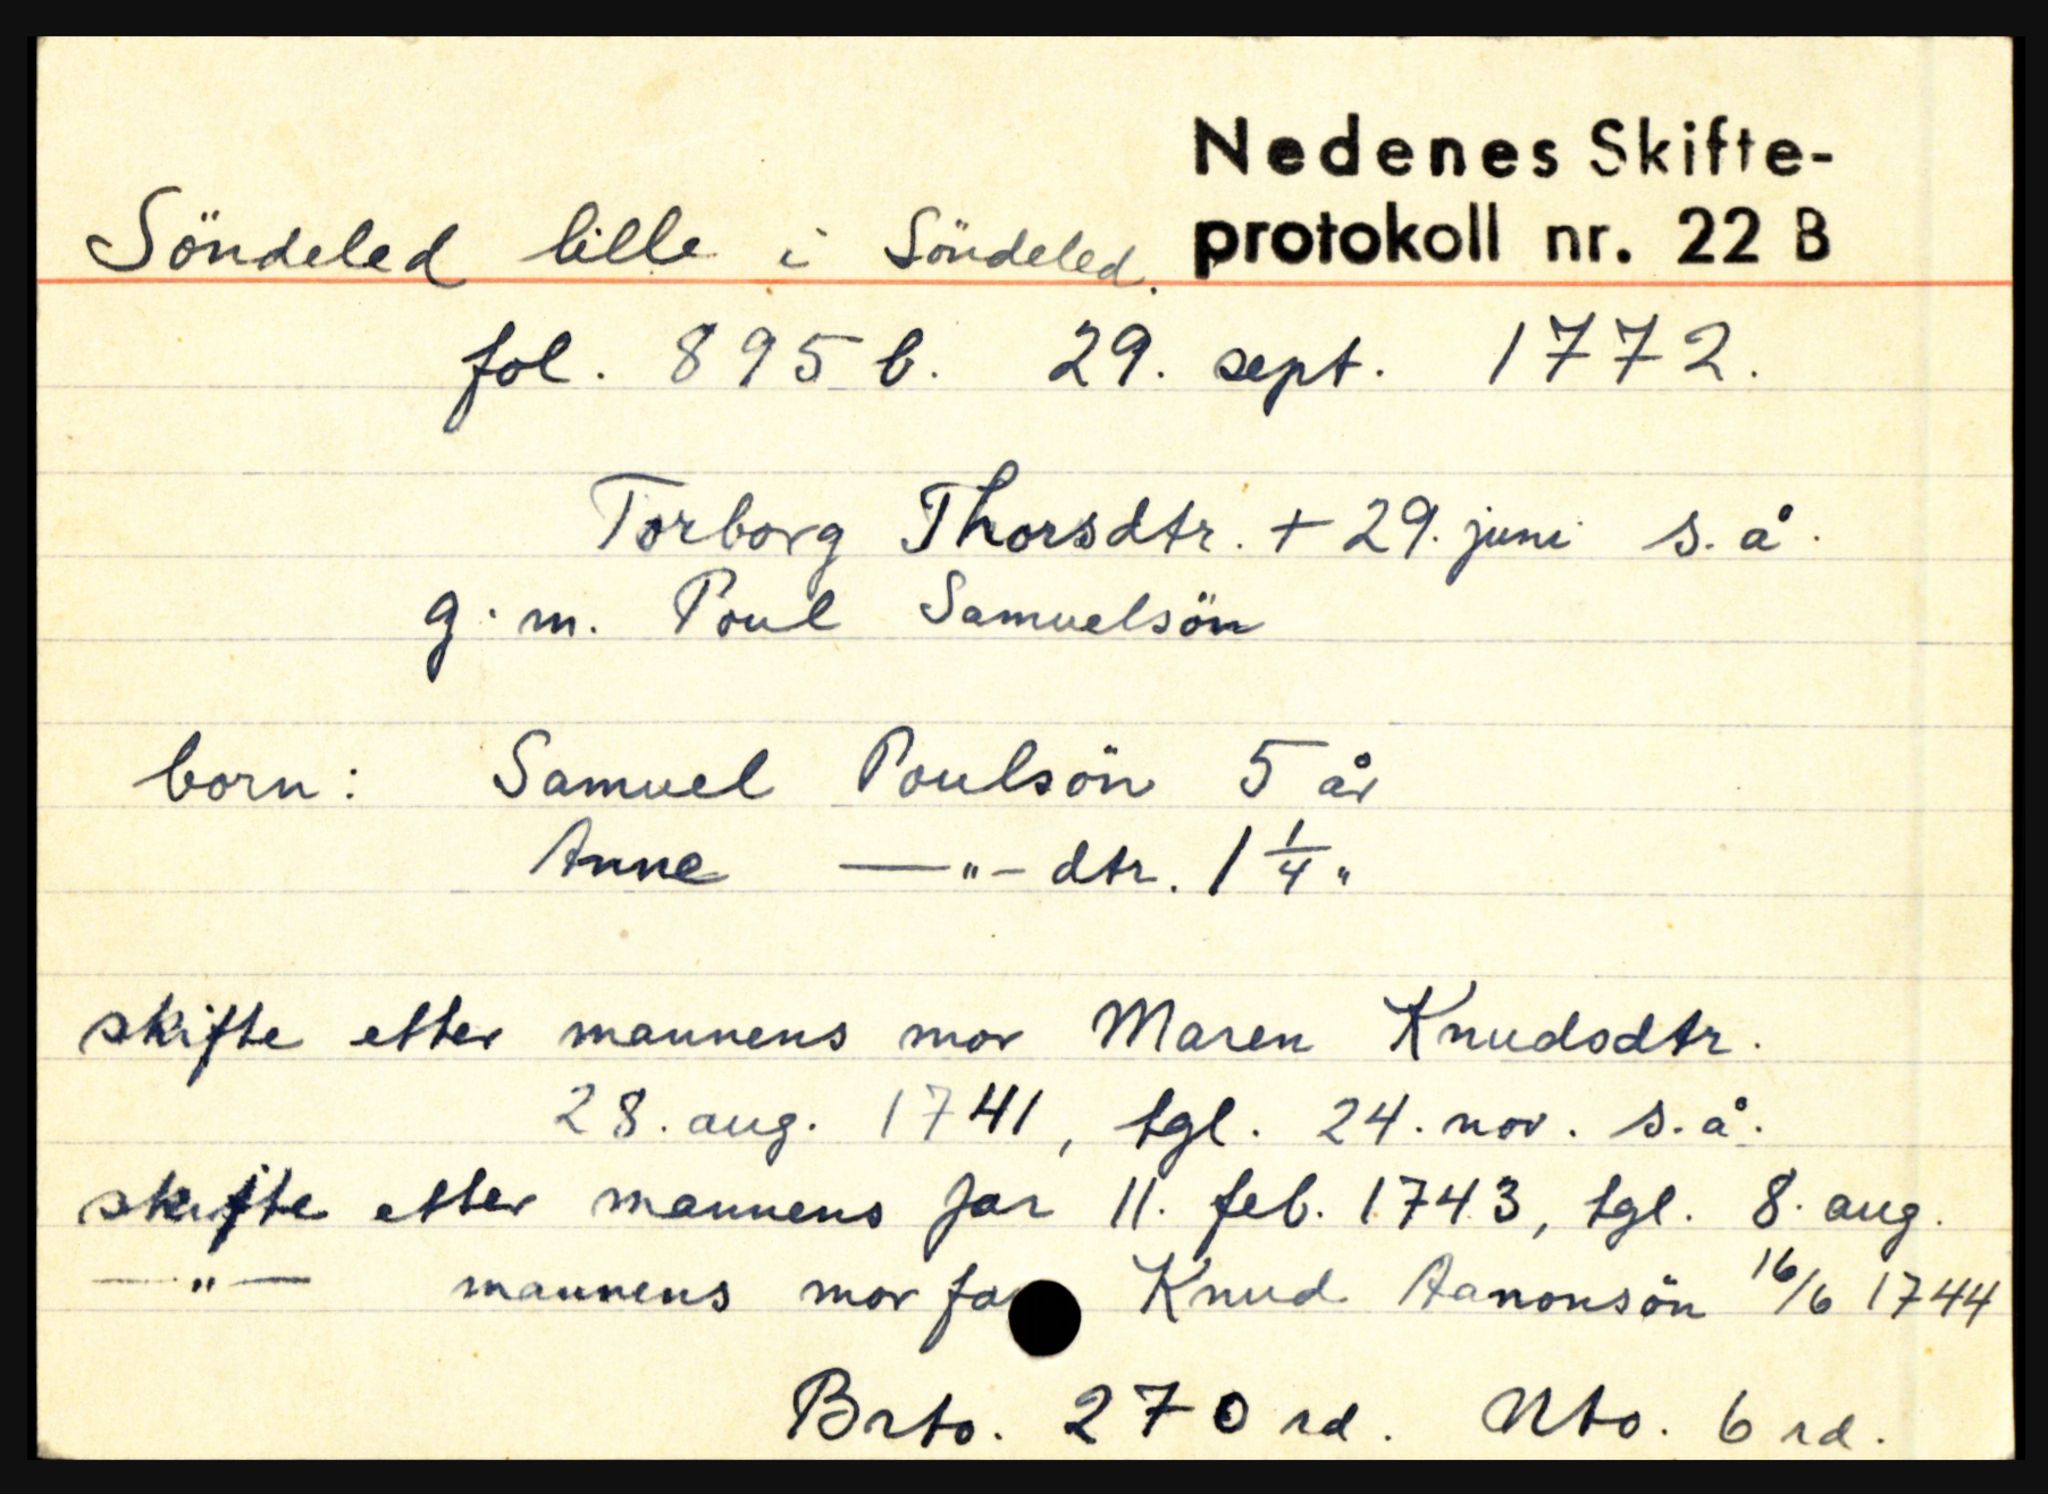 Nedenes Skifte-
protokoll nr. 22 B
Söndeled lille i Söndeled.
fol. 895 b. 29. sept. 1772.
Torborg Thorsdtr. + 29. juni s. å.
g. m. Poul Samuelsön
born: Samuel Poulsön 5 år
Anne —"— dtr. 1 1/4 "
skifte etter mannens mor Maren Knudsdtr.
28. aug. 1741, tgl. 24. nov. s. å.
skifte etter mannens far 11. feb. 1743, tgl. 8. aug.
—"— mannens morfar Knud Aanonsön 16/6 1744
Brto. 270 rd. Nto. 6 rd.